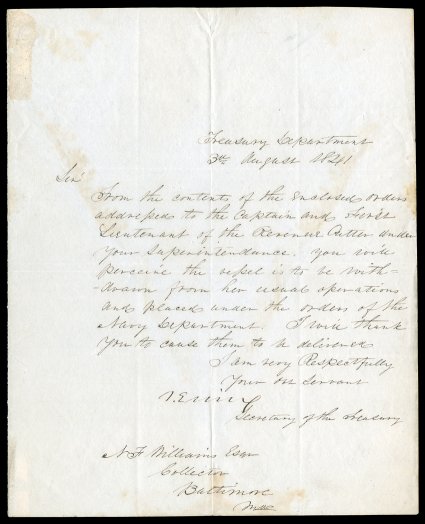 Treasury Department
3rd August 1841
Sir
From the contents of the Enclosed orders
addressed to the Captain and First
Lieutenant of the Revenue Cutter under
Your Superintendance. You will
perceive the vessel is to be with=
=drawn from her usual operations
and placed under the orders of the
Navy Department. I will thank
You to cause them to be delivered
I am very Respectfully
Your Obt Servant
Secretary of the Treasury
N F Williams Esqr
Collector
Baltimore